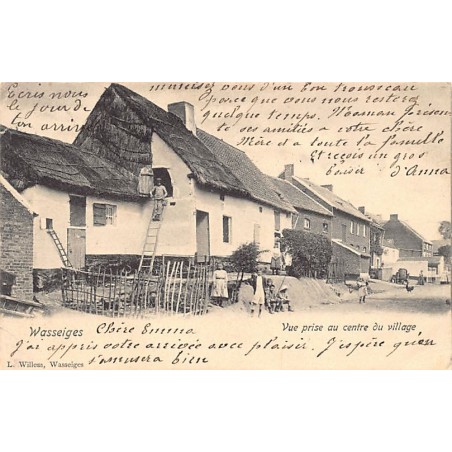 Wasseiges
Chère Emma
Vue prise au centre du village
J'ai appris votre arrivée avec plaisir. J'espère qu'on
t'amusera bien
L. Willem, Wasseiges
Ecris nous
le jour de
ton arrivée
munissez vous d'un bon trousseau
parce que vous nous resterez
quelque temps. Maman présen-
te ses amitiés a votre chère
Mère et a toute la famille
Et reçois un gros
baiser d'Anna